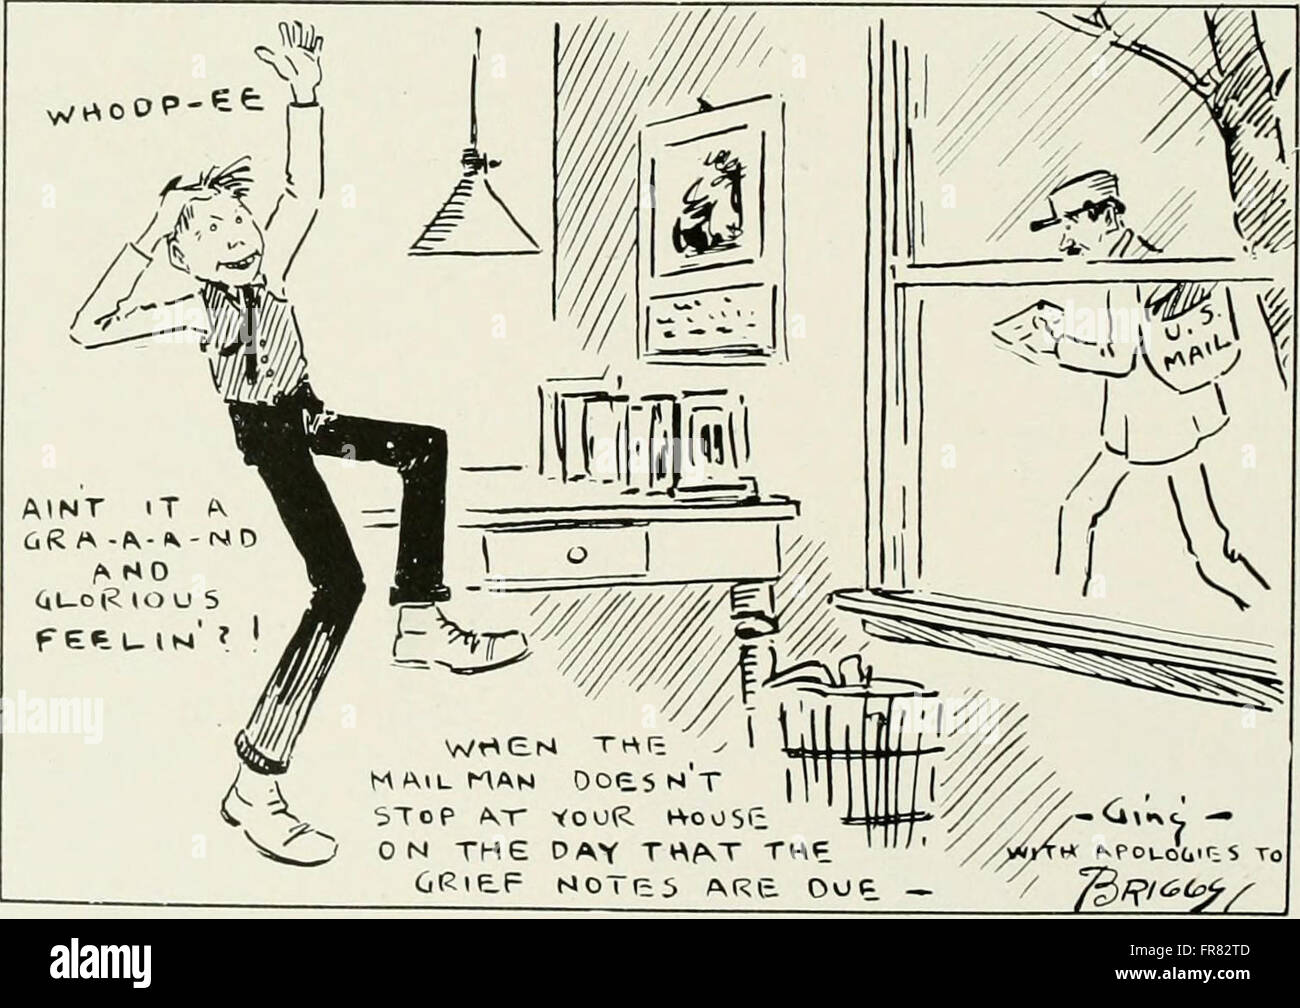 WHOOP-EE
AIN'T IT A
GRA-A-A-ND
AND
GLORIOUS
FEELIN'?!
U.S.
MAIL
WHEN THE
MAIL MAN DOESN'T
STOP AT YOUR HOUSE
ON THE DAY THAT THE
GRIEF NOTES ARE DUE —
-Ging-
WITH APOLOGIES TO
BRIGGS
alamy
alamy stock photo
FR82TD
www.alamy.com